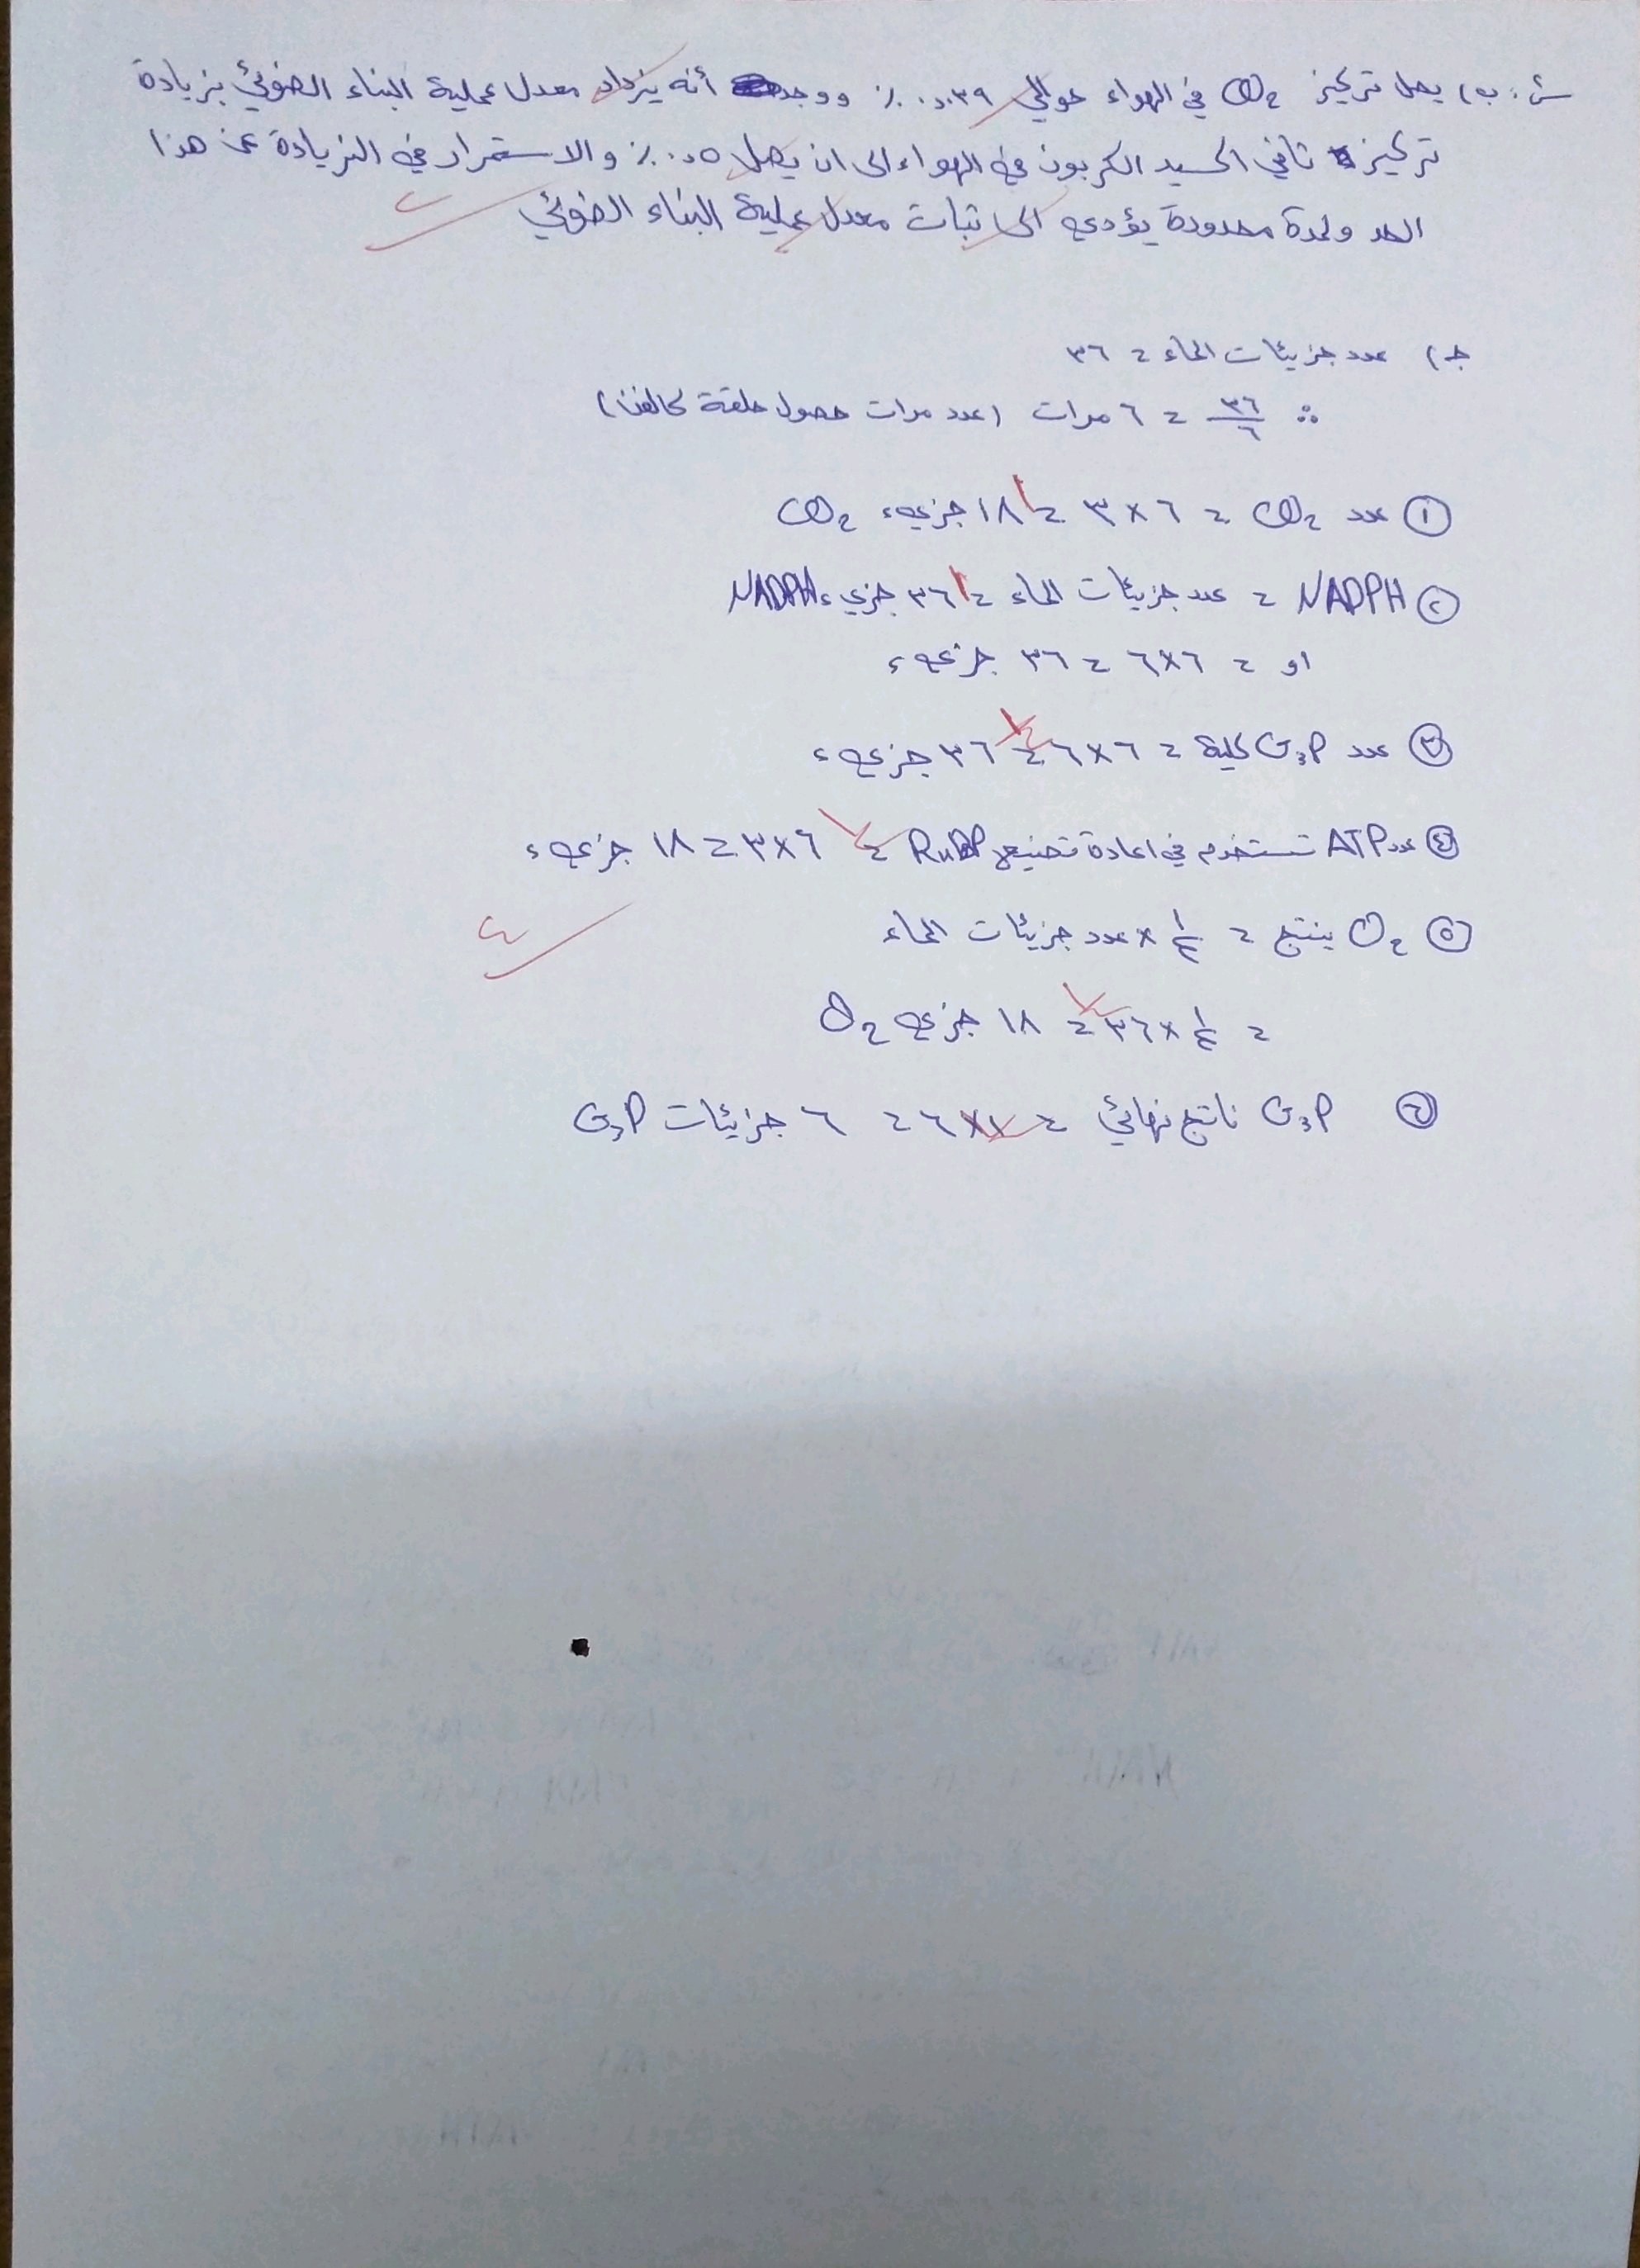 ب) يصل تركيز CO2 في الهواء حوالي ٠,٠٣٩٪ ووجد أنه يزداد معدل عملية البناء الضوئي بزيادة
تركيز ثاني اكسيد الكربون في الهواء الى ان يصل ٠,٠٥٪ والاستمرار في الزيادة عن هذا
الحد ولمدة محدودة يؤدي الى ثبات معدل عملية البناء الضوئي
ج) عدد جزيئات الماء = ٣٦
∴ ٣٦/٦ = ٦ مرات (عدد مرات حصول حلقة كالفن)
① عدد CO2 = ٦ × ٣ = ١٨ جزيء CO2
② NADPH = عدد جزيئات الماء = ٣٦ جزيء NADPH
او = ٦×٦ = ٣٦ جزيء
③ عدد G3P كلية = ٦×٦ = ٣٦ جزيء
④ عدد ATP تستخدم في اعادة تصنيع RuBP = ٦×٣ = ١٨ جزيء
⑤ O2 ينتج = ١/٢ × عدد جزيئات الماء
= ١/٢ × ٣٦ = ١٨ جزيء O2
⑥ G3P ناتج نهائي = ١×٦ = ٦ جزيئات G3P